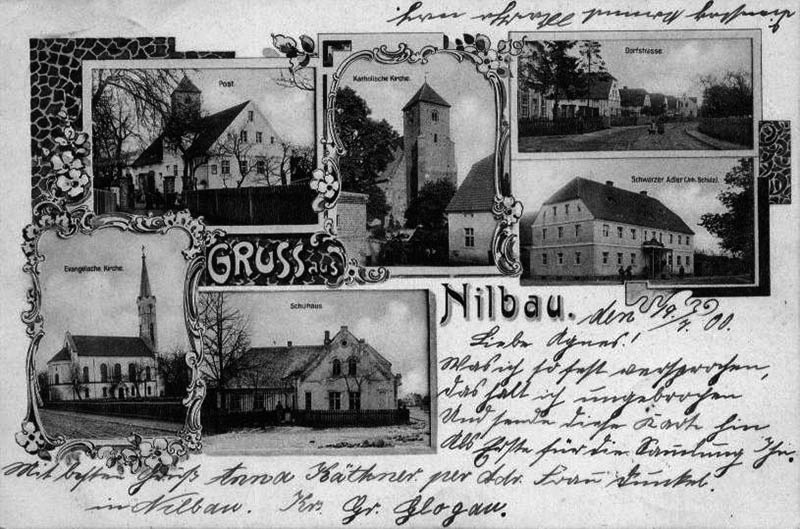 Post.
Katholische Kirche.
Dorfstrasse
Schwarzer Adler (Inh. Schulz).
Evangelische Kirche.
GRUSS aus
Schulhaus
Nilbau.
den 19./4. 00.
Liebe Agnes!
Was ich so fest versprochen,
das halt ich ungebrochen
Und sende diese Karte hin
Als Erste für die Samlung Ihn.
Mit besten Gruß Anna Käthner per Adr. Frau Dunkel.
in Nilbau. Krs. Gr. Glogau.